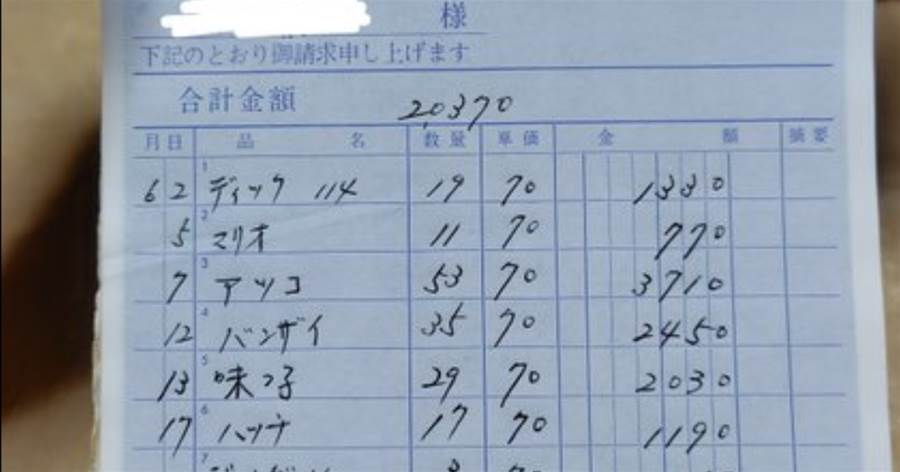 様
下記のとおり御請求申し上げます
合計金額 20370
月日 品名 数量 単価 金額 摘要
6 2 1 ディック 114 19 70 1330
5 2 マリオ 11 70 770
7 3 アツコ 53 70 3710
12 4 バンザイ 35 70 2450
13 5 味つ子 29 70 2030
17 6 ハッチ 17 70 1190
7